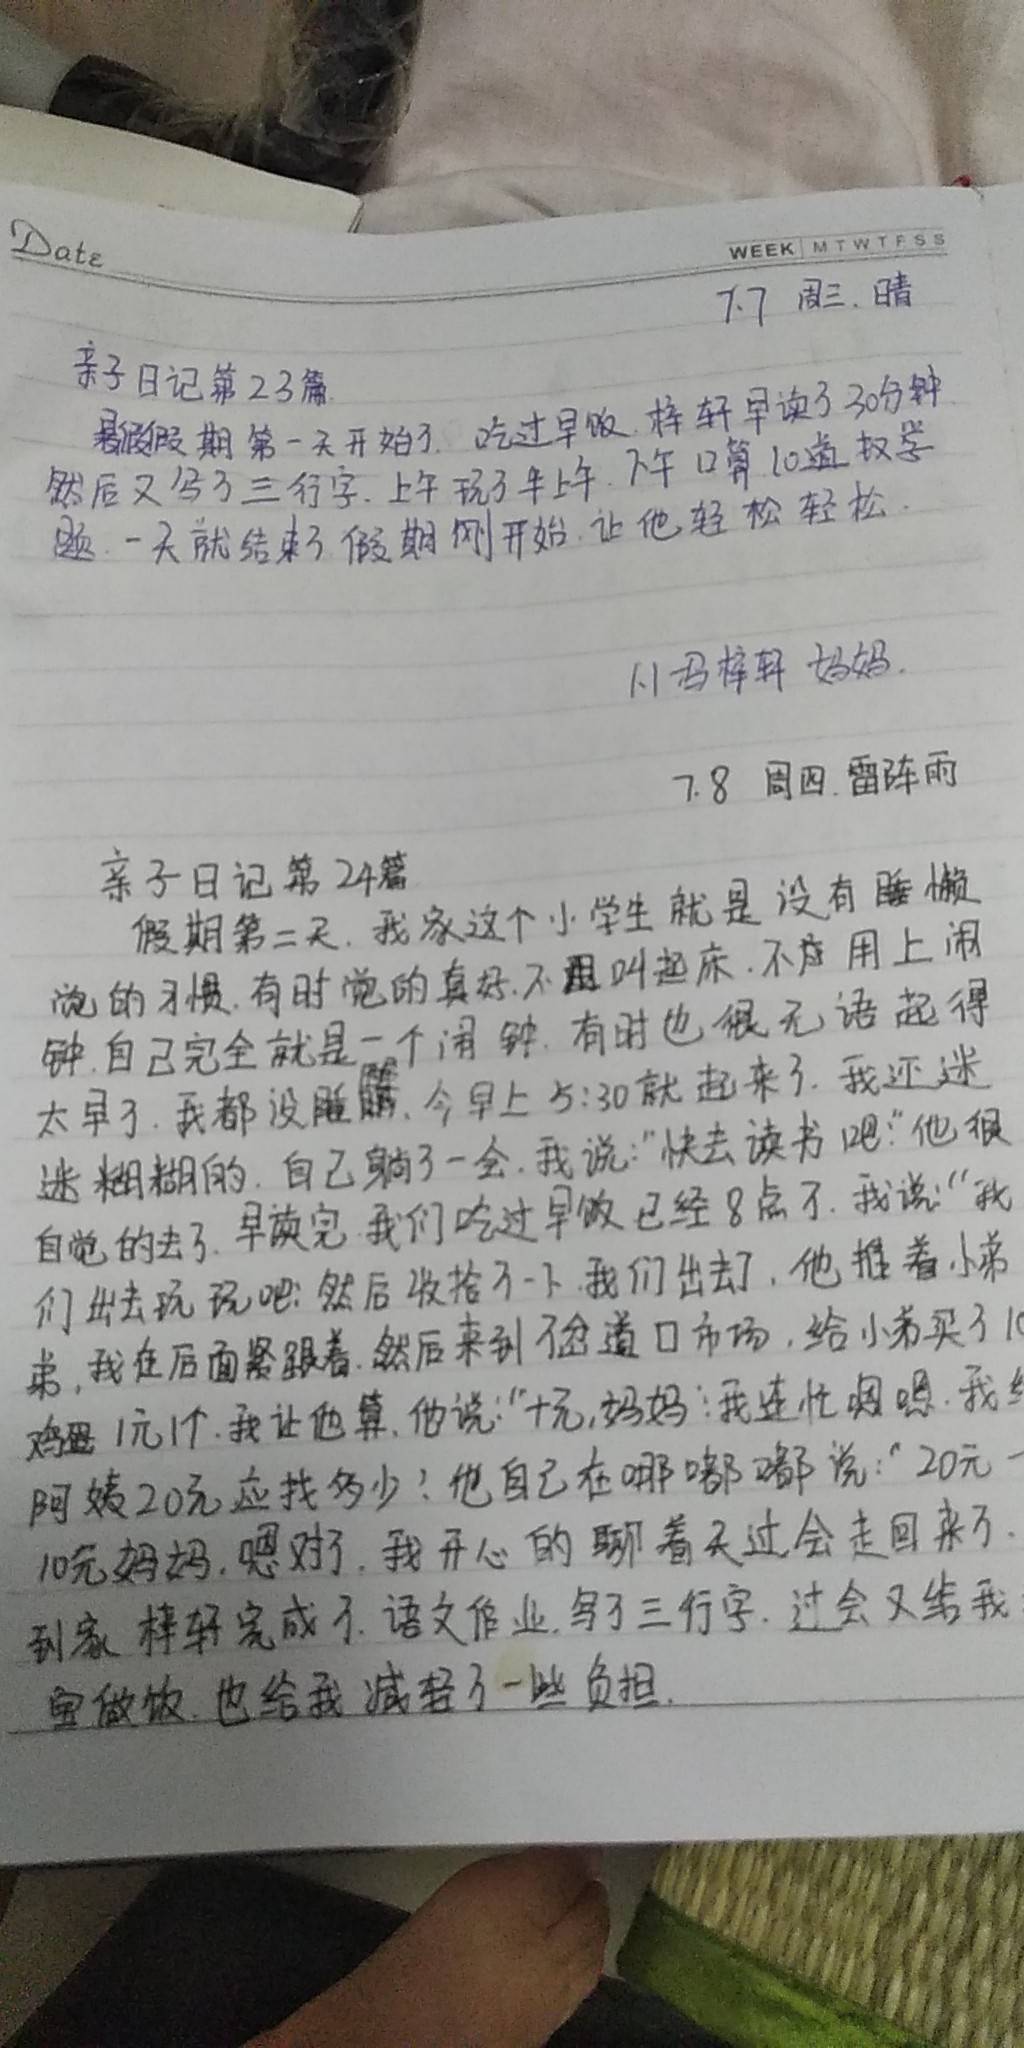 Date
WEEK M T W T F S S
7.7 周三. 晴
亲子日记第23篇.
暑假假期第一天开始了. 吃过早饭. 梓轩早读了30分钟
然后又写了三行字. 上午玩了半上午. 下午口算10道数学
题. 一天就结束了假期刚开始. 让他轻松轻松.
1.1 冯梓轩 妈妈.
7.8 周四. 雷阵雨
亲子日记第24篇
假期第二天. 我家这个小学生就是没有睡懒
觉的习惯. 有时觉的真好. 不用叫起床. 不应用上闹
钟. 自己完全就是一个闹钟. 有时也很无语起得
太早了. 我都没睡醒. 今早上5:30就起来了. 我还迷
迷糊糊的. 自己躺了一会. 我说:"快去读书吧."他很
自觉的去了. 早读完. 我们吃过早饭已经8点了. 我说:"我
们出去玩玩吧. 然后收拾了一下. 我们出去了. 他推着小弟
弟, 我在后面紧跟着. 然后来到了岔道口市场. 给小弟买了10
鸡蛋1元1个. 我让他算. 他说:"十元, 妈妈. 我连忙嗯嗯. 我给
阿姨20元应找多少? 他自己在哪嘟嘟说:"20元-
10元妈妈. 嗯对了. 我开心的聊着天过会走回来了.
到家梓轩完成了. 语文作业. 写了三行字. 过会又给我
做饭. 也给我减轻了一些负担.